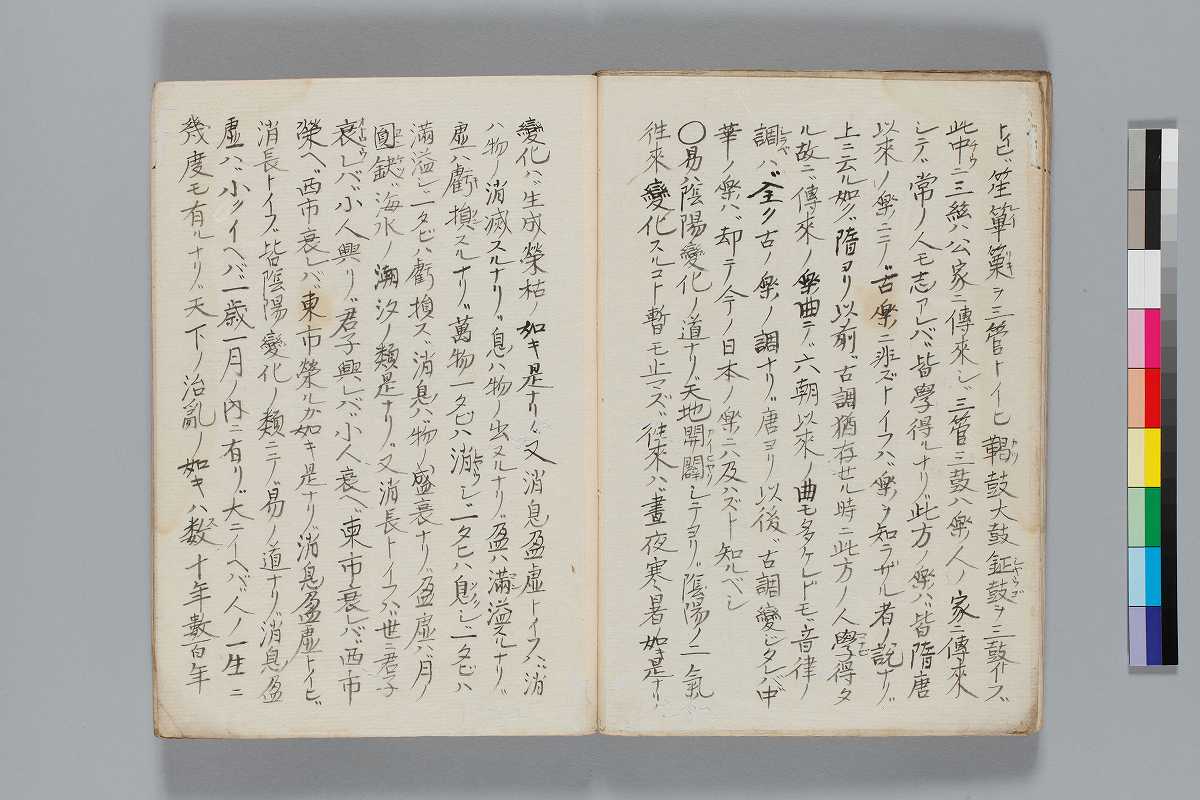 トヒ笙篳篥ヲ三管トイヒ鞨鼓大鼓鉦鼓ヲ三鼓トイフ
此中ニ三絃ハ公家ニ傳來シ三管三鼓ハ樂人ノ家ニ傳來
シテ常ノ人モ志アレバ皆學得ルナリ此方ノ樂ハ皆隋唐
以來ノ樂ニテ古樂ニ非ズトイフハ樂ヲ知ラザル者ノ説ナリ
上ニ云ル如ク隋ヨリ以前古調猶存セル時ニ此方ノ人學得タ
ル故ニ傳來ノ樂曲テ六朝以來ノ曲モ多ケレドモ音律ノ
調ハ全ク古ノ樂ノ調ナリ唐ヨリ以後古調變ジタレバ中
華ノ樂ハ却テ今ノ日本ノ樂ニ及ハズト知ルベシ
〇易ハ陰陽變化ノ道ナリ天地開闢シテヨリ陰陽ノ二氣
徃來變化スルコト暫モ止マズ徃來ハ晝夜寒暑ノ如キ是ナリ
變化ハ生成榮枯ノ如キ是ナリ又消息盈虛トイフハ消
ハ物ノ消滅スルナリ息ハ物ノ出ヌルナリ盈ハ滿溢スルナリ
虛ハ虧損スルナリ萬物一タビハ消シ一タビハ息シ一タビハ
滿溢シ一タビハ虧損ス消息ハ物ノ盛衰ナリ盈虛ハ月ノ
圓缺海水ノ潮汐ノ類是ナリ又消長トイフハ世ニ君子
衰レバ小人興リ君子興レバ小人衰ヘ東市衰レバ西市
榮ヘ西市衰レバ東市榮ルガ如キ是ナリ消息盈虛トイヒ
消長トイフ皆陰陽變化ノ類ニテ易ノ道ナリ消息盈
虛ハ小クイヘバ一歳一月ノ内ニ有リ大ニイヘバ人ノ一生ニ
幾度モ有ルナリ天下ノ治亂ノ如キハ數十年數百年